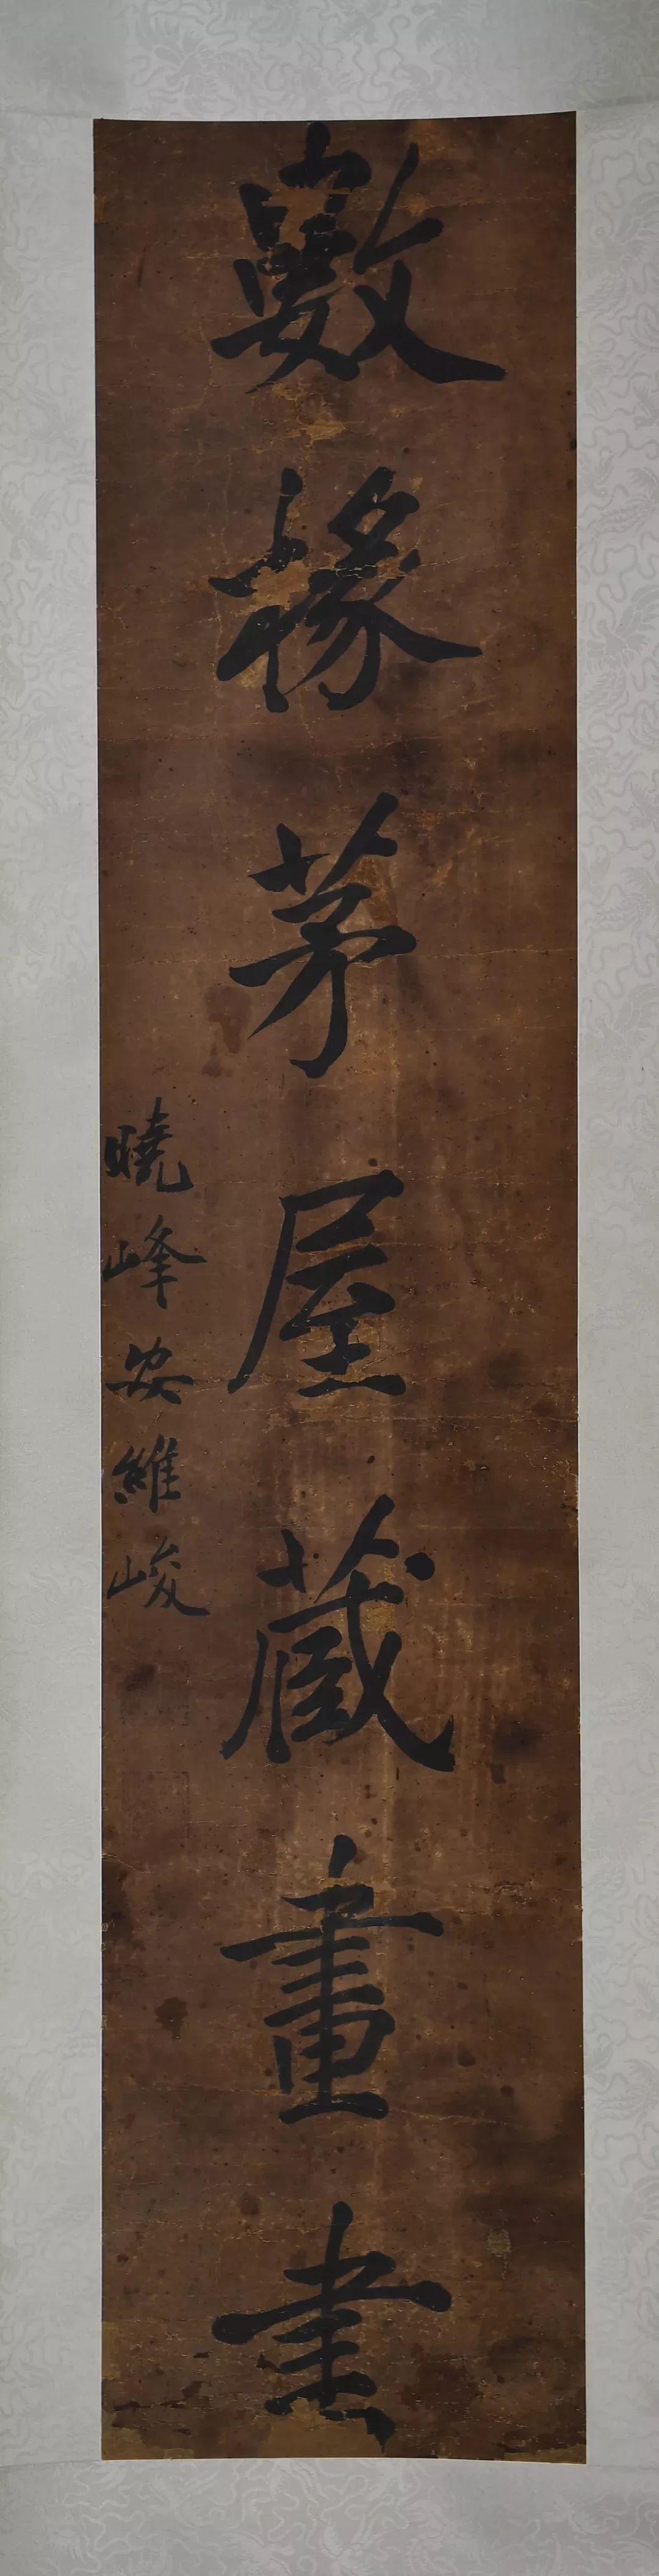 數椽茅屋藏畫書
曉峰安維峻